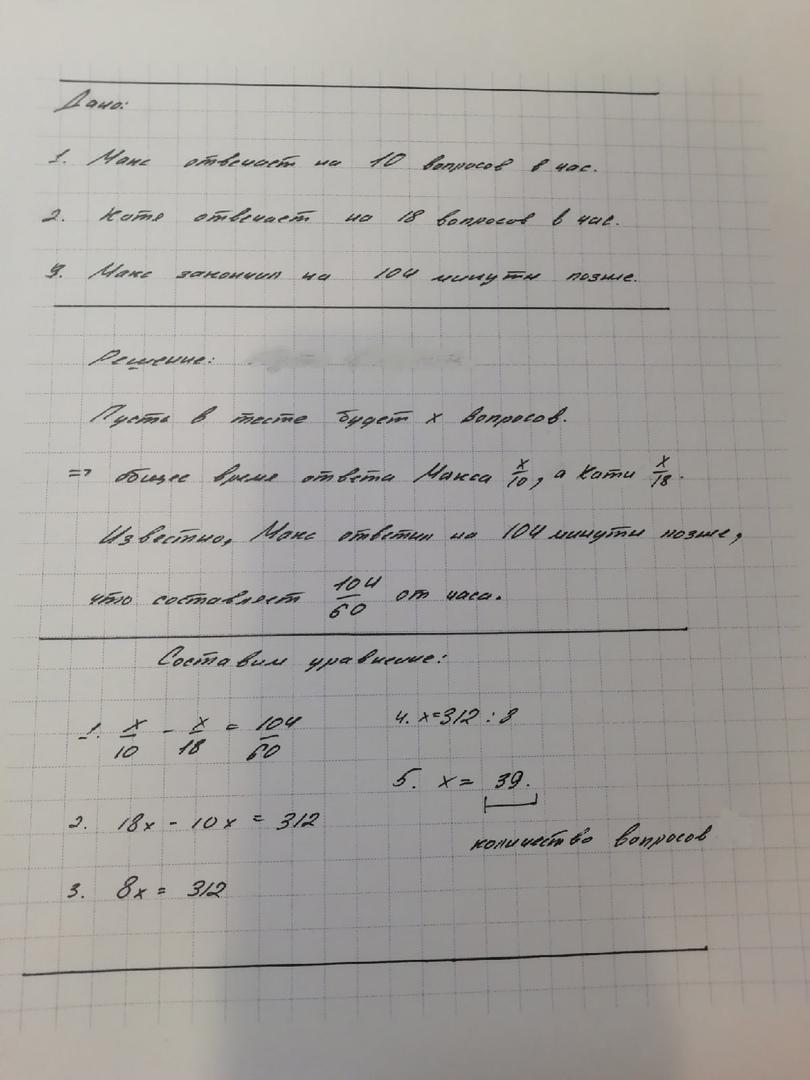 Дано:
1. Макс отвечает на 10 вопросов в час.
2. Катя отвечает на 18 вопросов в час.
3. Макс закончил на 104 минуты позже.
Решение:
Пусть в тесте будет x вопросов.
=> общее время ответа Макса x/10, а Кати x/18.
Известно, Макс ответил на 104 минуты позже,
что составляет 104/60 от часа.
Составим уравнение:
1. x/10 - x/18 = 104/60
2. 18x - 10x = 312
3. 8x = 312
4. x=312 : 8
5. x = 39.
количество вопросов